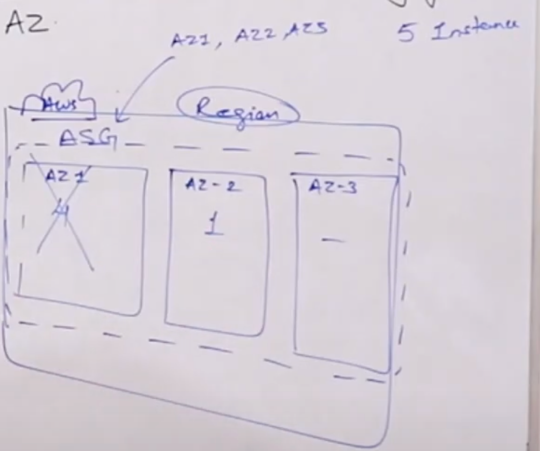 AZ
AZ1, AZ2, AZ3
5 Instance
AWS
Region
ASG
AZ-1
AZ-2
AZ-3
4
1
-